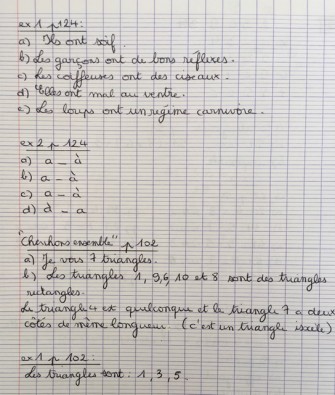 ex 1 p 124 :
a) Ils ont soif.
b) Les garçons ont de bons réflexes.
c) Les coiffeuses ont des ciseaux.
d) Elles ont mal au ventre.
e) Les loups ont un régime carnivore.
ex 2 p 124
a) a - à
b) a - à
c) a - à
d) à - a
"Cherchons ensemble" p 102
a) Je vois 7 triangles.
b) Les triangles 1, 9, 6, 10 et 8 sont des triangles
rectangles.
Le triangle 4 est quelconque et le triangle 7 a deux
côtés de même longueur (c'est un triangle isocèle)
ex 1 p 102 :
Les triangles sont : 1, 3, 5.